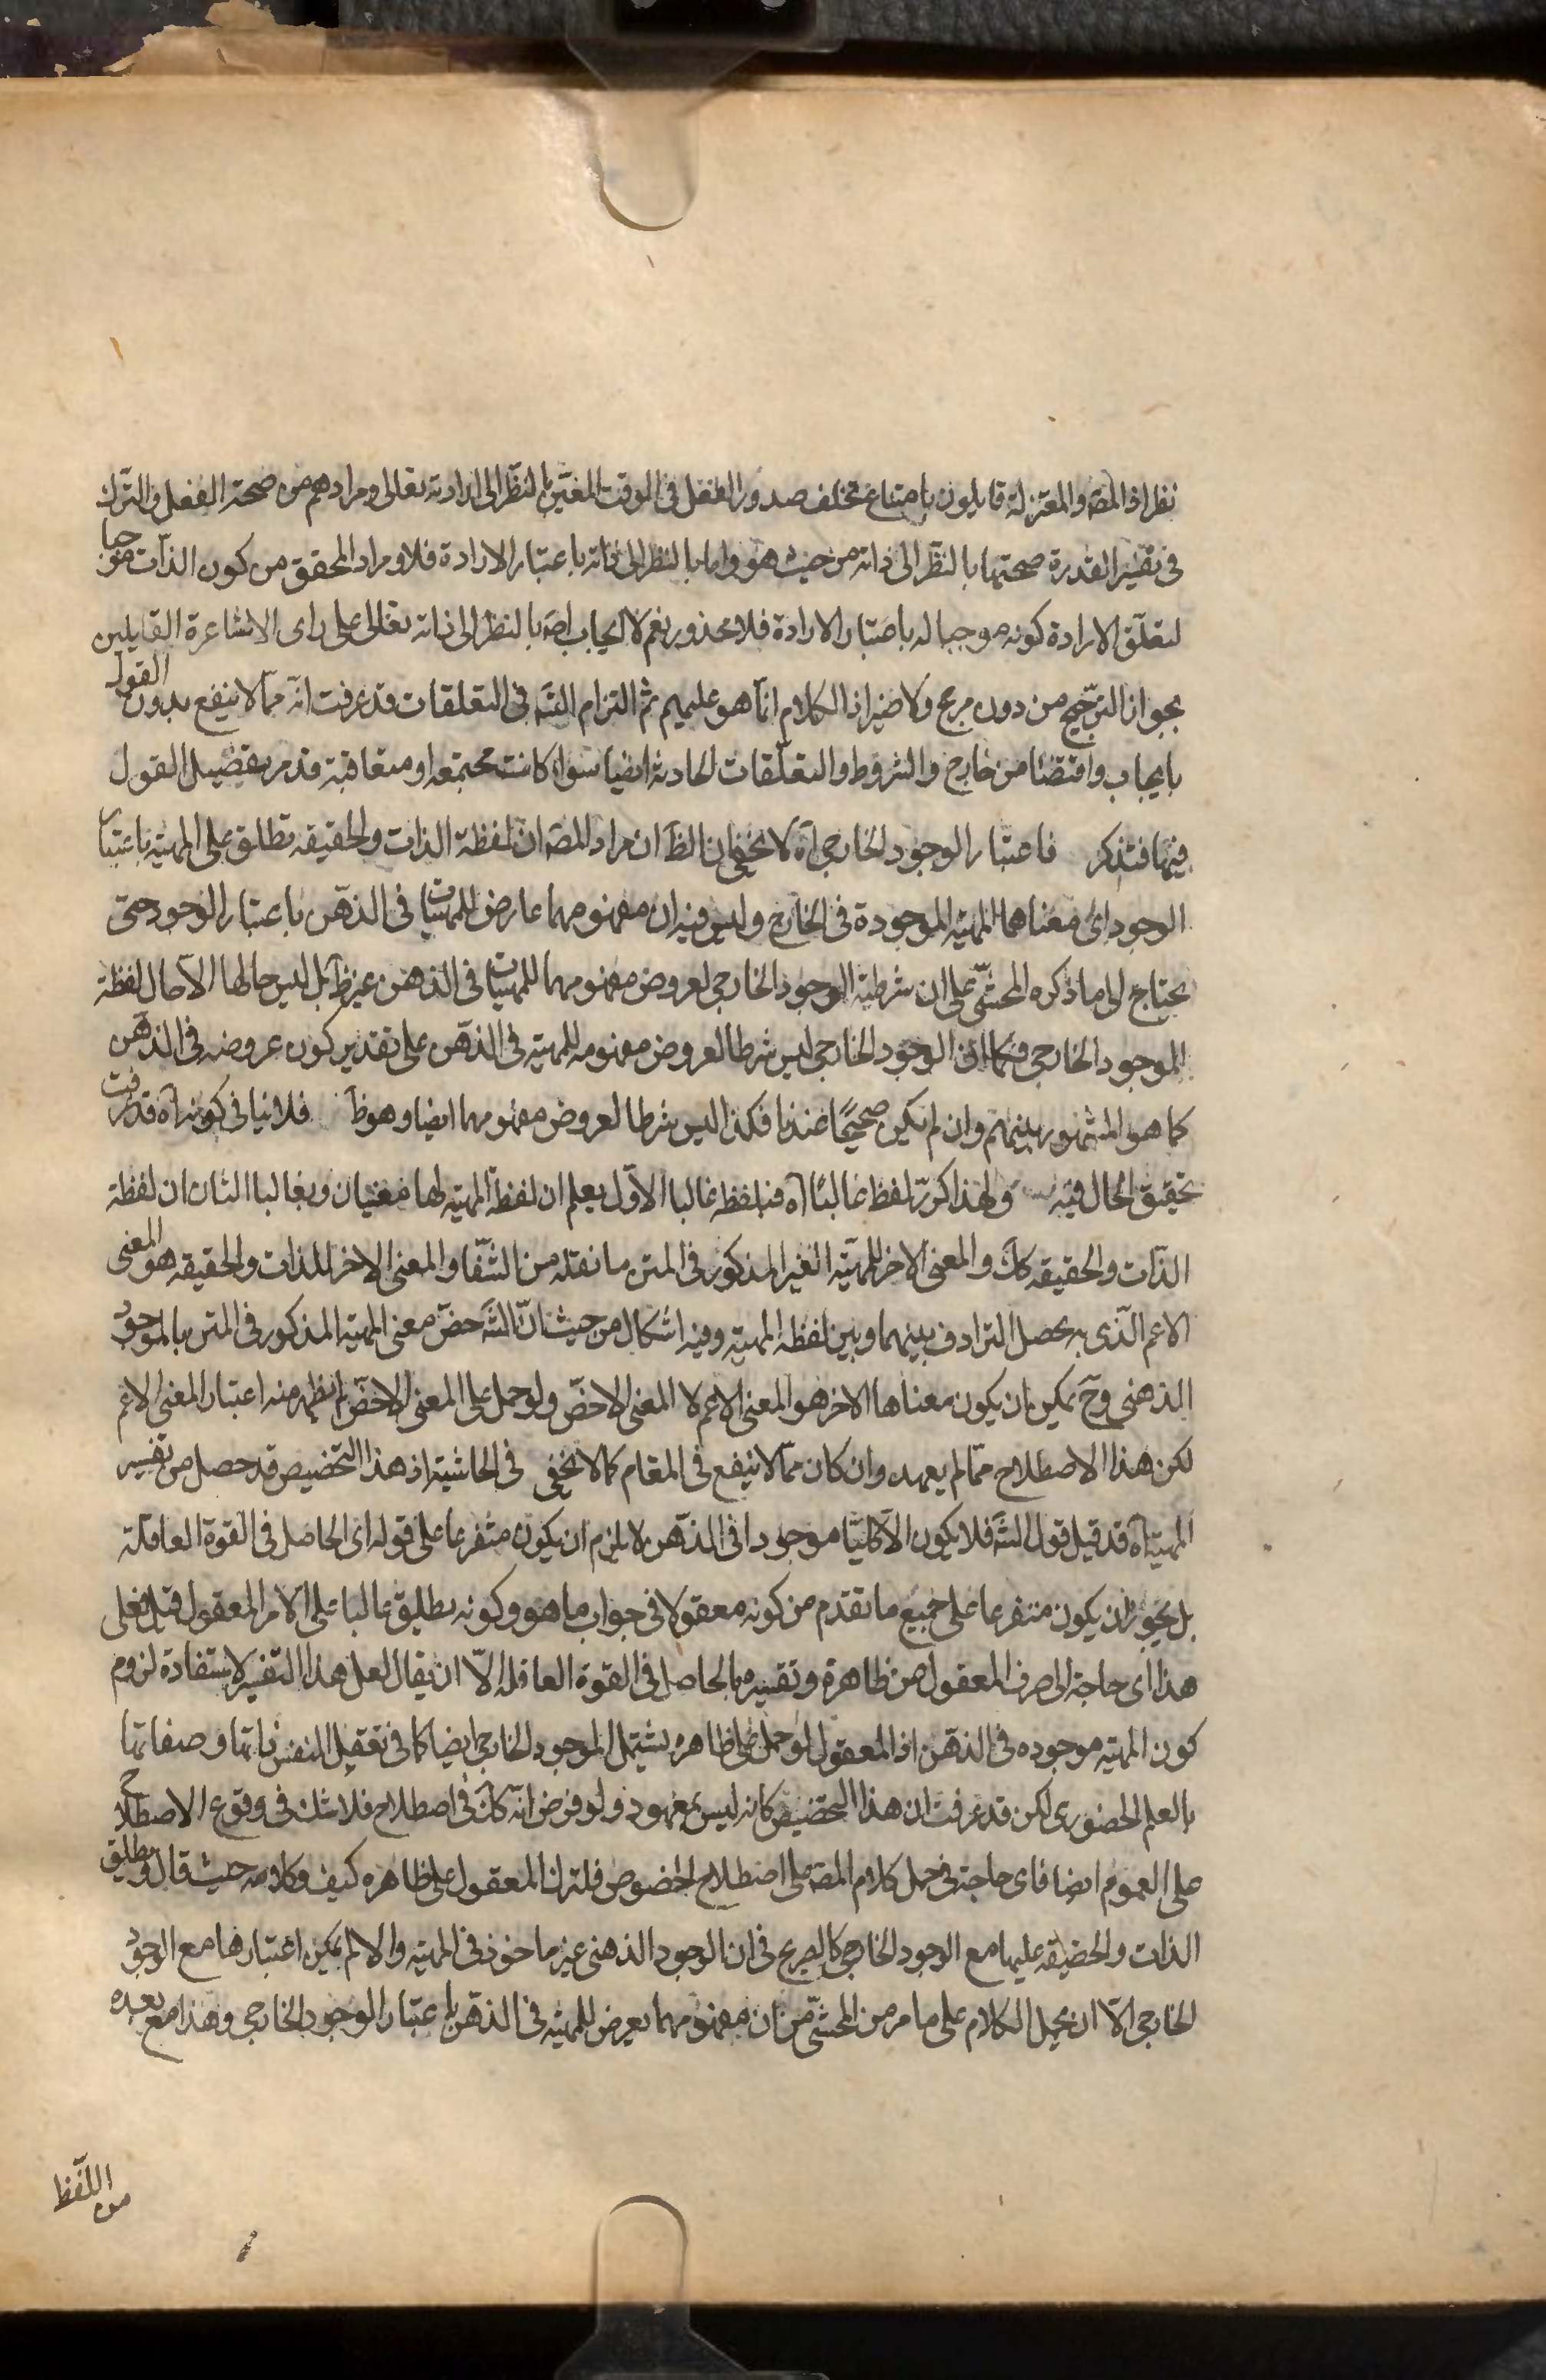 نظر اذ المصّ والمعتزلة قايلون بامتناع تخلف صدور الفعل فى الوقت المعيّن بالنظر الى ارادته تعالى ومرادهم من صحة الفعل والترك
فى تفسير القدرة صحتهما بالنظر الى ذاته من حيث هو واما بالنظر الى ذاته باعتبار الارادة فلا ومراد المحقق من كون الذات موجبا
لتعلق الارادة كونه موجبا له باعتبار الارادة فلا محذور نعم لا ايجاب اصّ بالنظر الى ذاته تعالى على راى الاشاعرة القايلين
بجواز الترجيح من دون مرجح ولا ضير اذ الكلام انما هو عليهم ثم التزام التسّ فى التعلقات قد عرفت انه مما لا ينفع بدون القول
بايجاب واقتضا من خارج والشروط والتعلقات الحادثة ايضا سواء كانت مجتمعة او متعاقبة وقد مر تفصيل القول
فيها فتذكر فاعتبار الوجود الخارجى آه لا يخفى ان الظّ ان مراد المصّ ان لفظة الذات والحقيقه تطلق على المهيّه باعتبار
الوجود اى معناهما المهيّه الموجودة فى الخارج وليس فيه ان مفهومهما عارض للمهيّات فى الذهن باعتبار الوجود حتى
يحتاج الى ما ذكره المحشّى على ان شرطية الوجود الخارجى لعروض مفهومهما للمهيّات فى الذهن غير ظّ بل ليس حالها الا حال لفظة
الموجود الخارجى فكما ان الوجود الخارجى ليس شرطا لعروض مفهومه للمهيّه فى الذهن على تقدير كون عروضه فى الذهن
كما هو المشهور بينهم وان لم يكن صحيحًا عندنا فكذا ليس شرطا لعروض مفهومهما ايضا وهو ظّ فلا ينافى كونه آه قد عرفت
تحقيق الحال فيه ولهذا كرّر لفظ غالبًا آه فبلفظ غالبا الاوّل يعلم ان لفظ المهيّه لها معنيان وبغالبا الثان ان لفظة
الذات والحقيقه ككّ والمعنى الاخر للمهيّه الغير المذكور فى المتن ما نقله من الشفا والمعنى الاخر للذات والحقيقه هو المعنى
الاعم الّذى به يحصل الترادف بينهما وبين لفظة المهيّه وفيه اشكال من حيث انّ الشّ خصّ معنى المهيّه المذكور فى المتن بالموجود
الذهنى وحّ يمكن ان يكون معناها الاخر هو المعنى الاعم لا المعنى الاخصّ ولو حمل على المعنى الاخصّ لم يظهر منه اعتبار المعنى الاعم
لكن هذا الاصطلاح ممّا لم يعهد وان كان ممّا لا ينفع فى المقام كما لا يخفى فى الحاشية اذ هذا التخصيص قد حصل من تفسير
المهيّه آه قد قيل قول الشّ فلا يكون الّا كليّا موجودا فى الذهن لا يلزم ان يكون متفرعا على قوله اى الحاصل فى القوة العاقلة
بل يجوز ان يكون متفرعا على جميع ما تقدم من كونه معقولا فى جواب ما هو وكونه يطلق غالبا على الامر المعقول قيل فعلى
هذا اى حاجة الى صرف المعقول من ظاهره وتفسيره بالحاصل فى القوة العاقله الّا ان يقال لعل هذا التفسير لاستفادة لزوم
كون المهيّه موجوده فى الذهن اذ المعقول لو حمل على ظاهره يشتمل الموجود الخارجى ايضا كما فى تعقل النفس ذاتها وصفاتها
بالعلم الحضورى لكن قد عرفت ان هذا التخصيص كانه ليس بمعهود ولو فرض انّه ككّ فى اصطلاح فلا شك فى وقوع الاصطلاح
على العموم ايضا فاى حاجة فى حمل كلام المصّ على اصطلاح الخصوص فلتنزل المعقول على ظاهره كيف وكلامه حيث قال ويطلق
الذات والحقيقه عليها مع الوجود الخارجى كالصريح فى ان الوجود الذهنى غير ماخوذ فى المهيّه والا لم يمكن اعتبارها مع الوجود
الخارجى الّا ان يحمل الكلام على ما مر من المحشّى من ان مفهومهما يعرض للمهيّه فى الذهن باعتبار الوجود الخارجى وهذا مع بعده
من اللفظ